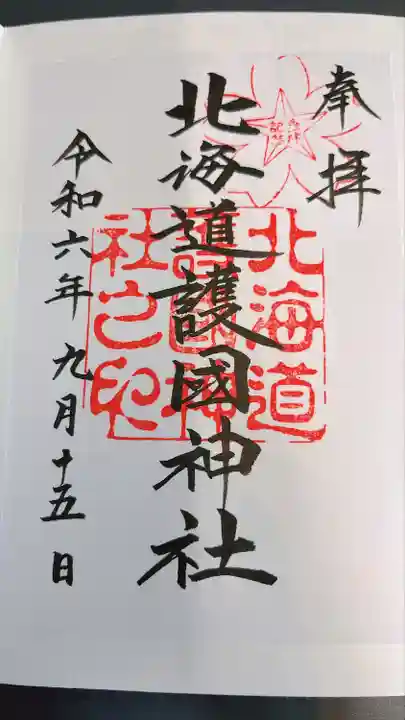 奉拝
北海道護國神社
北海道
護國神
社之印
令和六年九月十五日